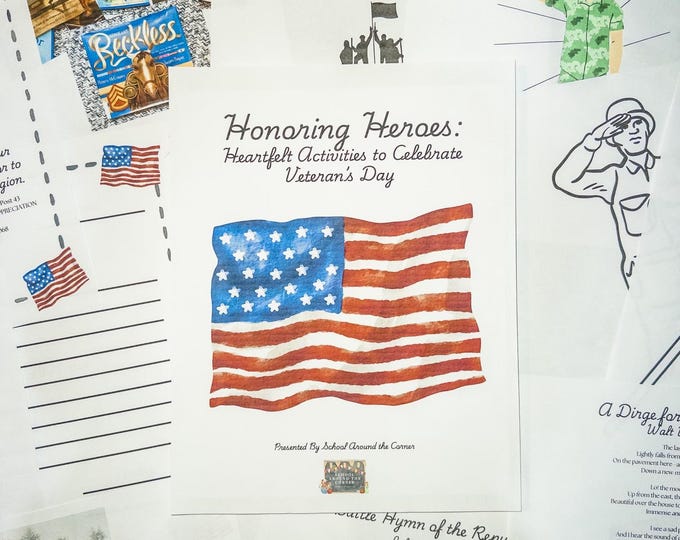 Reckless
ur
er to
gion.
Post 43
PRECIATION
068
Honoring Heroes:
Heartfelt Activities to Celebrate
Veteran's Day
Presented By School Around the Corner
SCHOOL
AROUND THE
CORNER
A Dirge for
Walt
The las
Lightly falls from
On the pavement here - a
Down a new m
Lo! the moo
Up from the east, th
Beautiful over the house to
Immense and
I see a sad p
And I hear the sound of
Battle Hymn of the Repu